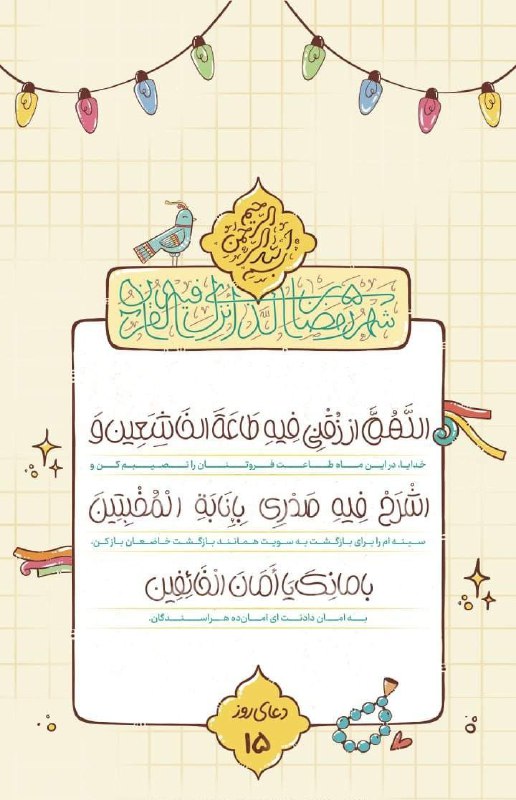 بسم الله الرحمن الرحیم
شهر رمضان الذی انزل فیه القرآن
اللَّهُمَّ ارْزُقْنِی فِیهِ طَاعَةَ الْخَاشِعِینَ وَ
خدایا، در این ماه طاعت فروتنان را نصیبم کن و
اشْرَحْ فِیهِ صَدْرِی بِإِنَابَةِ الْمُخْبِتِینَ
سینه ام را برای بازگشت به سویت همانند بازگشت خاضعان باز کن،
بِأَمَانِكَ یَا أَمَانَ الْخَائِفِینَ
به امان دادنت ای امان‌ده هراسندگان.
دعای روز
۱۵